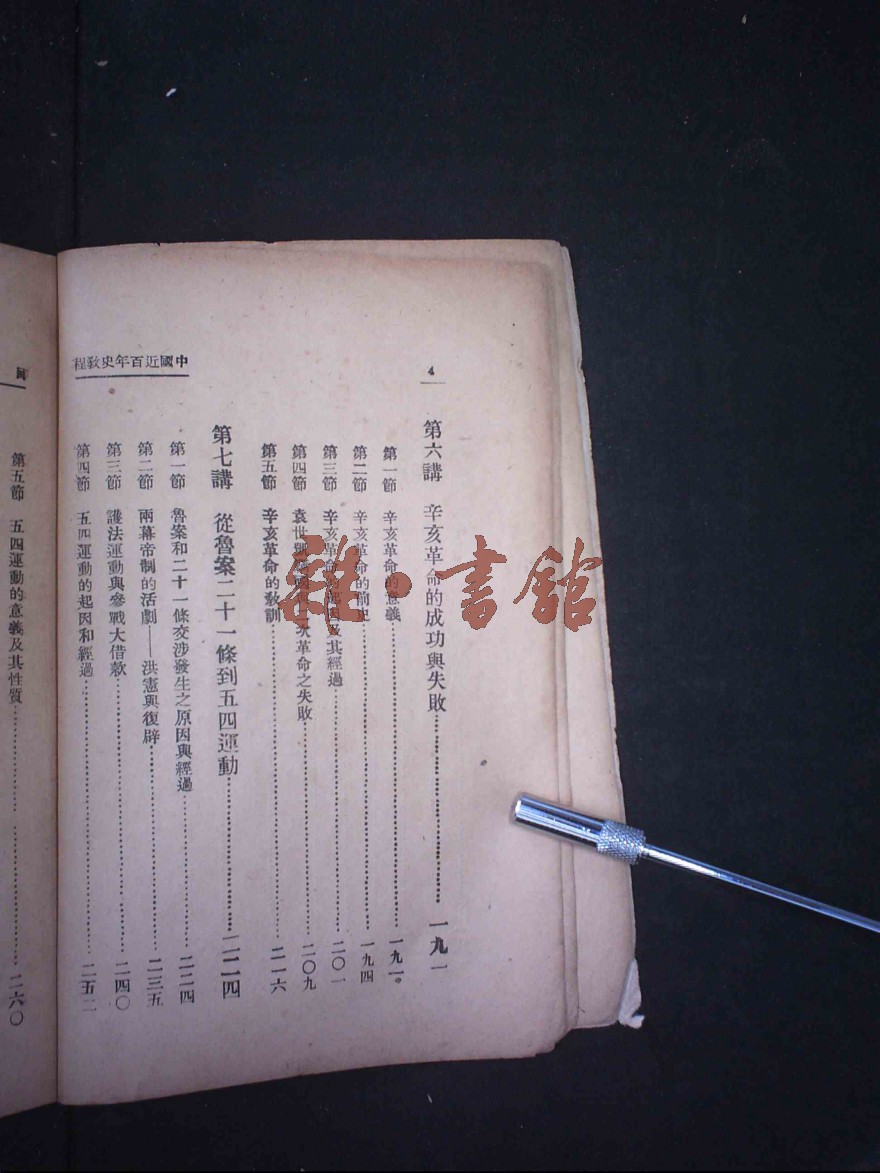 4
中國近百年史教程
第六講 辛亥革命的成功與失敗 一九一
第一節 辛亥革命的意義 一九一
第二節 辛亥革命的前史 一九四
第三節 辛亥革命的起因及其經過 二〇一
第四節 袁世凱 二次革命之失敗 二〇九
第五節 辛亥革命的教訓 二一六
第七講 從魯案二十一條到五四運動 二二四
第一節 魯案和二十一條交涉發生之原因與經過 二二四
第二節 兩幕帝制的活劇——洪憲與復辟 二三五
第三節 護法運動與參戰大借款 二四〇
第四節 五四運動的起因和經過 二五二
第五節 五四運動的意義及其性質 二六〇
雜·書館